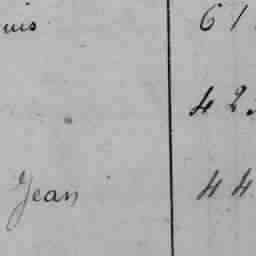 uis 61
42.
Jean 44